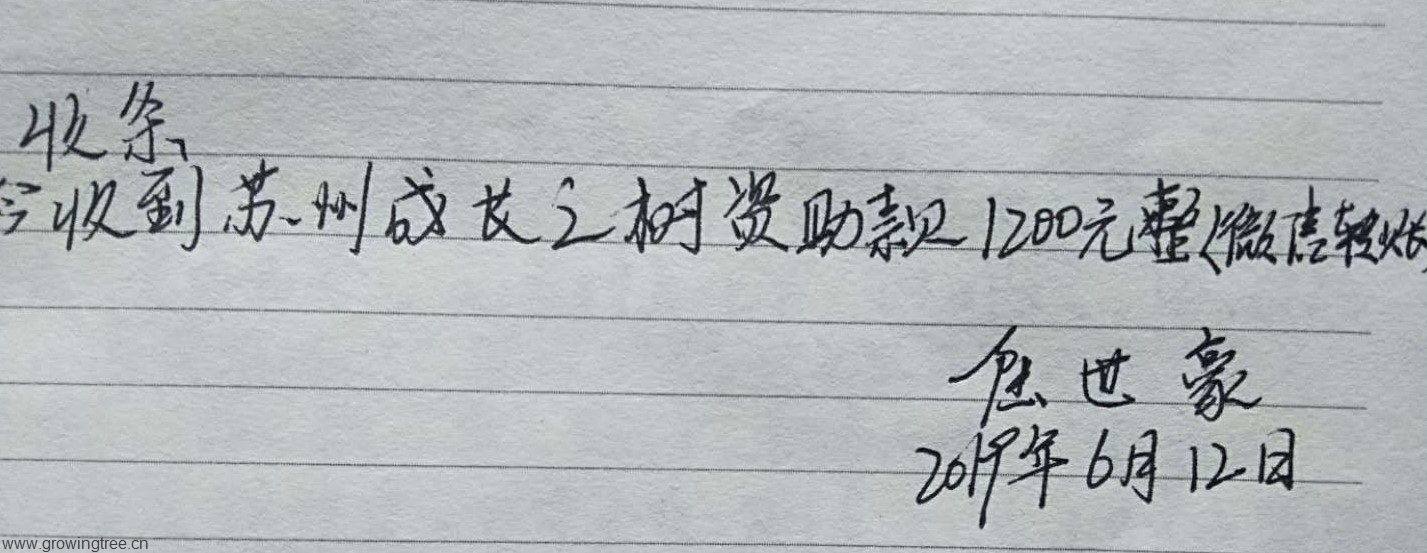 收条
今收到苏州成长之树资助款1200元整(微信转账
世豪
2019年6月12日
www.growingtree.cn